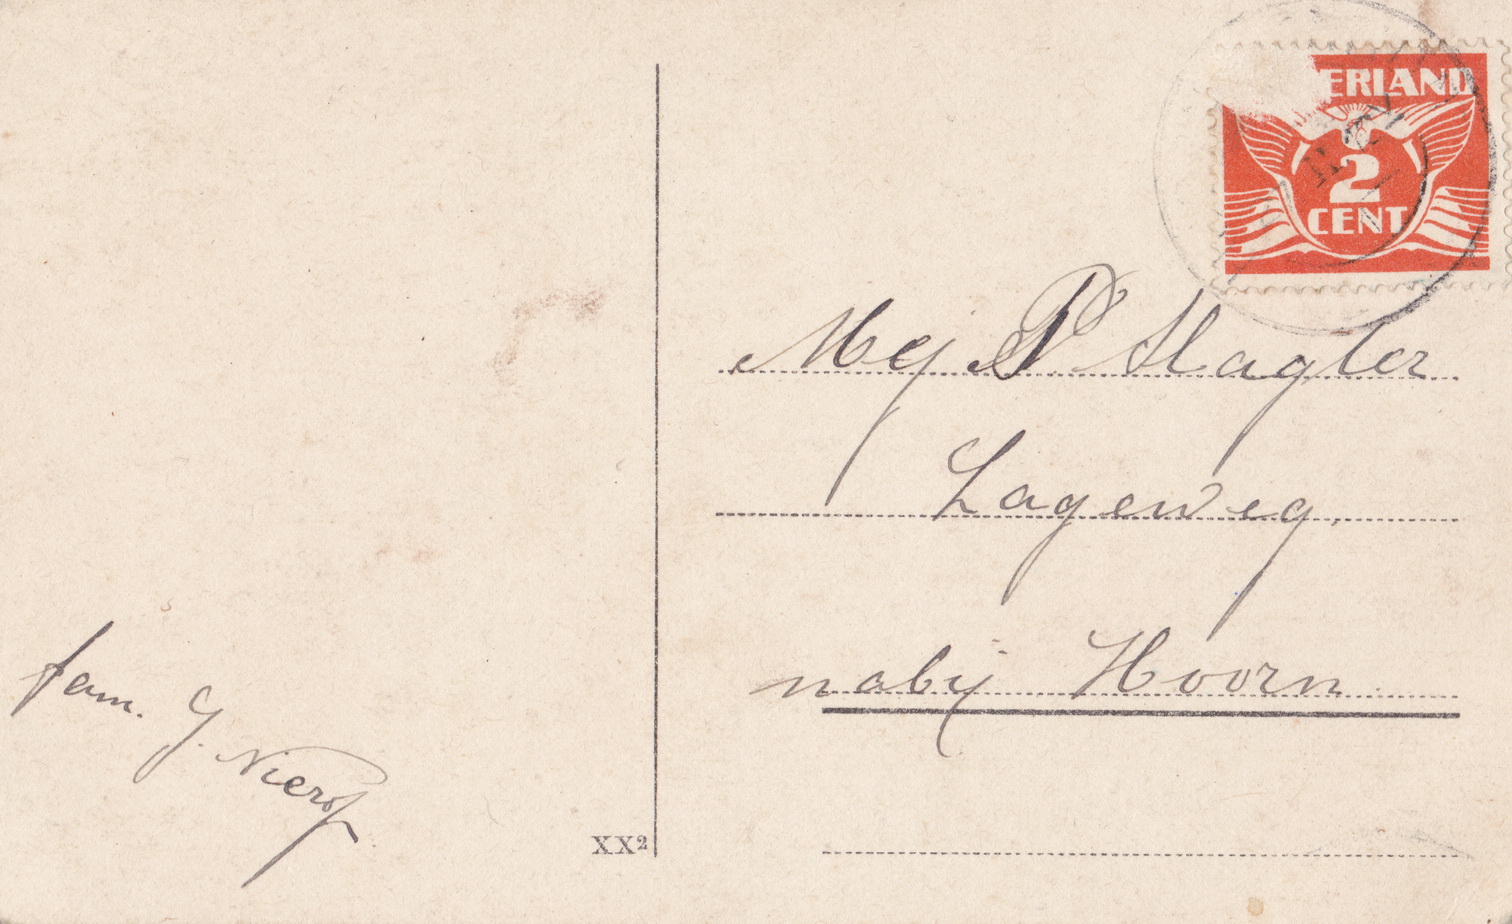 ERLAND
2
CENT
Mej P Slagter
Lageweg,
nabij Hoorn
fam. J. Nierop
XX2